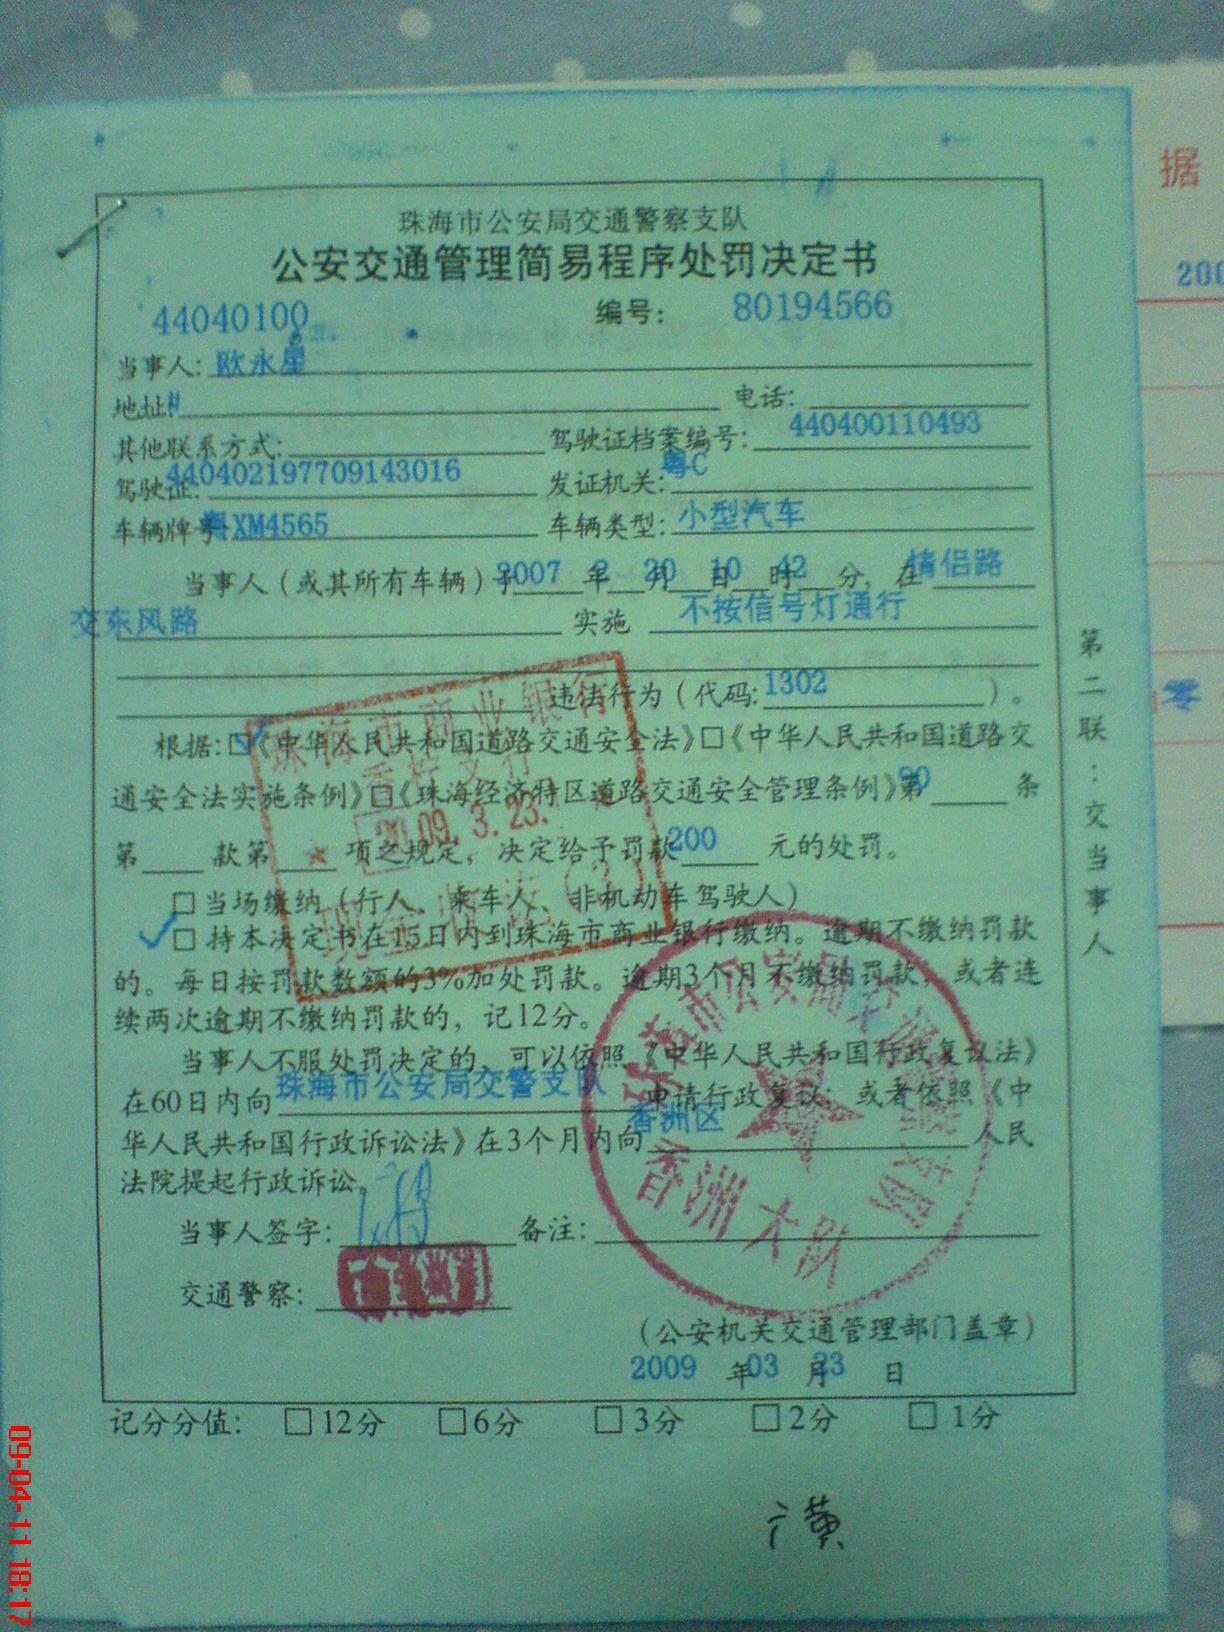 珠海市公安局交通警察支队
公安交通管理简易程序处罚决定书
44040100 编号: 80194566
当事人: 欧永星
地址 电话:
其他联系方式: 驾驶证档案编号: 440400110493
驾驶证: 440402197709143016 发证机关: 粤C
车辆牌号 粤XM4565 车辆类型: 小型汽车
当事人（或其所有车辆）于2007年2月20日10时42分，在情侣路
交东风路 实施 不按信号灯通行
违法行为（代码:1302）。
根据:☑《中华人民共和国道路交通安全法》□《中华人民共和国道路交
通安全法实施条例》□《珠海经济特区道路交通安全管理条例》第90条
第 款第 项之规定，决定给予罚款200元的处罚。
□当场缴纳（行人、乘车人、非机动车驾驶人）
✓□持本决定书在15日内到珠海市商业银行缴纳。逾期不缴纳罚款
的。每日按罚款数额的3%加处罚款。逾期3个月不缴纳罚款，或者连
续两次逾期不缴纳罚款的，记12分。
当事人不服处罚决定的，可以依照《中华人民共和国行政复议法》
在60日内向珠海市公安局交警支队申请行政复议；或者依照《中
华人民共和国行政诉讼法》在3个月内向香洲区人民
法院提起行政诉讼。
当事人签字: 备注:
交通警察:
（公安机关交通管理部门盖章）
2009年03月23日
记分分值: □12分 □6分 □3分 □2分 □1分
第二联：交当事人
珠海市商业银行
2009. 3. 23.
香洲大队
据
200
零
09-04-11 18:17